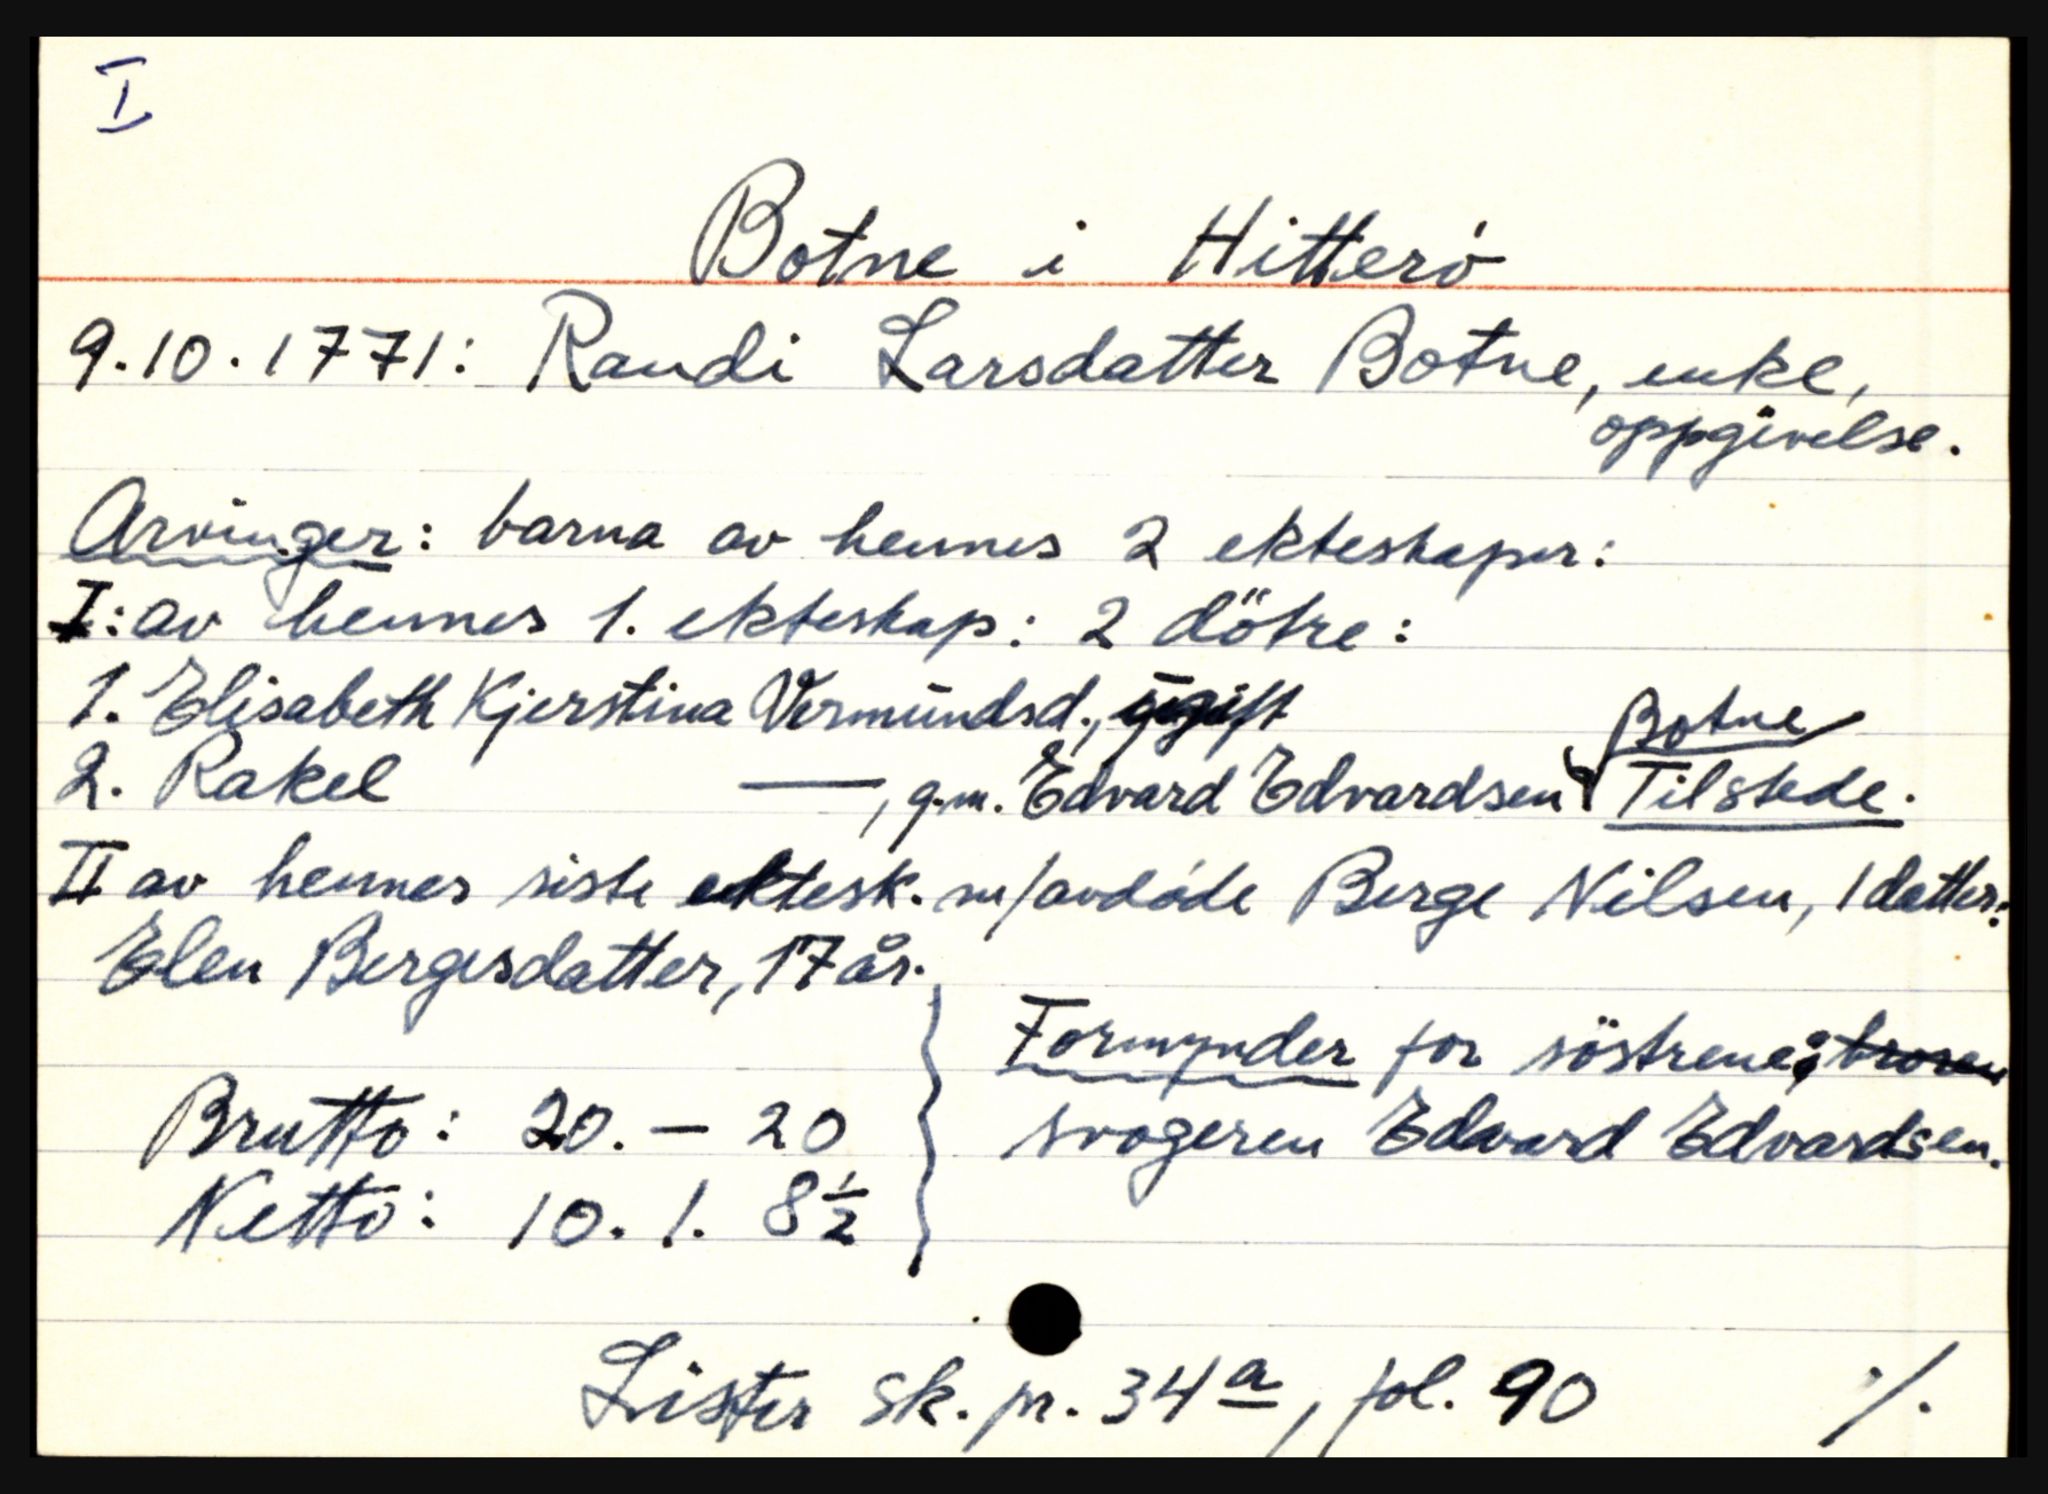 I
Botne i Hitterö
9.10.1771: Randi Larsdatter Botne, enke,
oppgivelse.
Arvinger: barna av hennes 2 ekteskaper:
I: av hennes 1. ekteskap: 2 dötre:
1. Elisabeth Kjerstina Vermundsd., ugift
Botne
2. Rakel —, g.m. Edvard Edvardsen Tilstede.
II av hennes siste ektesk. m/avdøde Berge Nilsen, 1 datter:
Elen Bergesdatter, 17 år.
Formynder for söstrene: broren
Brutto: 20. — 20
svogeren Edvard Edvardsen.
Netto: 10. 1. 8½
Lister sk. pr. 34a, fol. 90 ./.